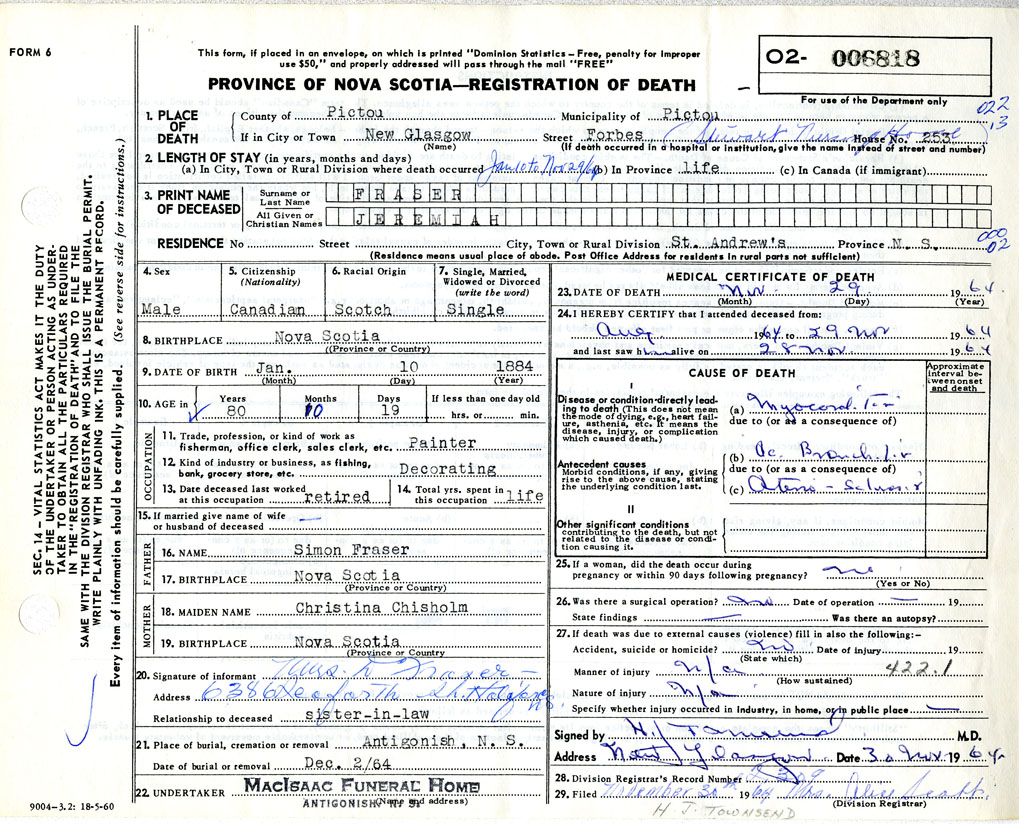 FORM 6
This form, if placed in an envelope, on which is printed "Dominion Statistics – Free, penalty for improper
use $50," and properly addressed will pass through the mail "FREE"
PROVINCE OF NOVA SCOTIA—REGISTRATION OF DEATH
O2- 006818
For use of the Department only
022
13
1. PLACE OF DEATH
County of Pictou Municipality of Pictou
If in City or Town New Glasgow Street Forbes (Stewart Nursing Home) House No. 253
(Name) (If death occurred in a hospital or institution, give the name instead of street and number)
2. LENGTH OF STAY (in years, months and days)
(a) In City, Town or Rural Division where death occurred Jan 10 to Nov 29/64 (b) In Province life (c) In Canada (if immigrant)
3. PRINT NAME OF DECEASED
Surname or Last Name FRASER
All Given or Christian Names JEREMIAH
000
02
RESIDENCE No Street City, Town or Rural Division St. Andrew's Province N. S.
(Residence means usual place of abode. Post Office Address for residents in rural parts not sufficient)
4. Sex
Male
5. Citizenship (Nationality)
Canadian
6. Racial Origin
Scotch
7. Single, Married, Widowed or Divorced (write the word)
Single
8. BIRTHPLACE Nova Scotia
((Province or Country)
9. DATE OF BIRTH Jan. 10 1884
(Month) (Day) (Year)
10. AGE in Years Months Days If less than one day old
80 10 19 hrs. or min.
OCCUPATION
11. Trade, profession, or kind of work as
fisherman, office clerk, sales clerk, etc. Painter
12 Kind of industry or business, as fishing,
bank, grocery store, etc. Decorating
13. Date deceased last worked at this occupation retired
14. Total yrs. spent in this occupation life
15. If married give name of wife
or husband of deceased —
FATHER
16. NAME Simon Fraser
17. BIRTHPLACE Nova Scotia
(Province or Country)
MOTHER
18. MAIDEN NAME Christina Chisholm
19. BIRTHPLACE Nova Scotia
(Province or Country)
20. Signature of informant Mrs. D Fraser
Address 6386 Seaforth St Halifax N.S.
Relationship to deceased sister-in-law
21. Place of burial, cremation or removal Antigonish, N. S.
Date of burial or removal Dec. 2/64
22. UNDERTAKER MACISAAC FUNERAL HOME
ANTIGONISH, N. S.
(Name and address)
MEDICAL CERTIFICATE OF DEATH
23. DATE OF DEATH Nov. 29 1964.
(Month) (Day) (Year)
24. I HEREBY CERTIFY that I attended deceased from:
Aug 1964 to 29 Nov 1964
and last saw him alive on 28 Nov. 1964
CAUSE OF DEATH
Approximate interval between onset and death
I
Disease or condition directly leading to death (This does not mean the mode of dying, e.g., heart failure, asthenia, etc. It means the disease, injury, or complication which caused death.)
(a) Myocarditis
due to (or as a consequence of)
Antecedent causes
Morbid conditions, if any, giving rise to the above cause, stating the underlying condition last.
(b) Ac. Bronchitis
due to (or as a consequence of)
(c) Arterio-Sclerosis
II
Other significant conditions
contributing to the death, but not related to the disease or condition causing it.
25. If a woman, did the death occur during
pregnancy or within 90 days following pregnancy? no
(Yes or No)
26. Was there a surgical operation? no Date of operation — 19
State findings — Was there an autopsy?
27. If death was due to external causes (violence) fill in also the following:–
Accident, suicide or homicide? no Date of injury 19
(State which)
Manner of injury N/a 422.1
(How sustained)
Nature of injury N/a
Specify whether injury occurred in industry, in home, or in public place —
Signed by H J Townsend M.D.
Address New Glasgow Date 30 Nov 1964
28. Division Registrar's Record Number 309
29. Filed November 30th 1964 Mrs. Alice Scott
(Division Registrar)
H J TOWNSEND
SEC. 14 – VITAL STATISTICS ACT MAKES IT THE DUTY
OF THE UNDERTAKER OR PERSON ACTING AS UNDER-
TAKER TO OBTAIN ALL THE PARTICULARS REQUIRED
IN THE "REGISTRATION OF DEATH" AND TO FILE THE
SAME WITH THE DIVISION REGISTRAR WHO SHALL ISSUE THE BURIAL PERMIT.
WRITE PLAINLY WITH UNFADING INK. THIS IS A PERMANENT RECORD.
Every item of information should be carefully supplied. (See reverse side for instructions.)
9004-3.2: 18-5-60